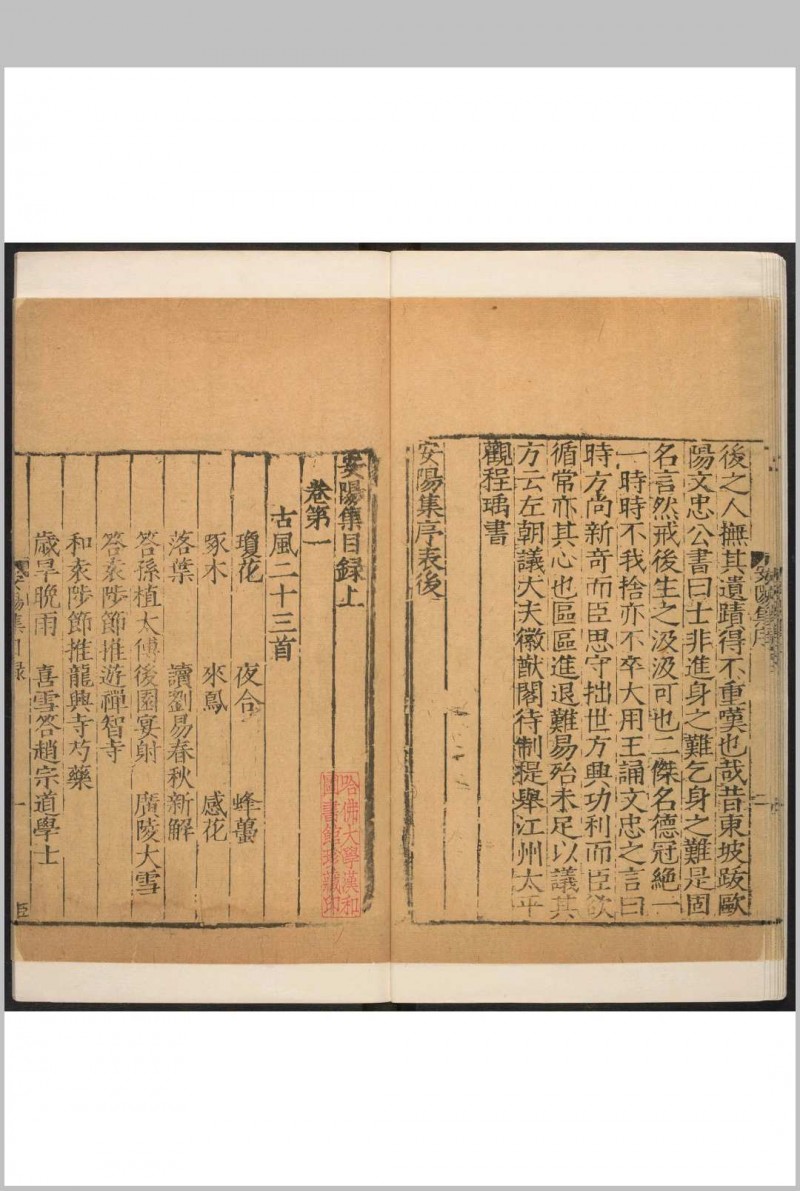 後之人撫其遺蹟得不重嘆也哉昔東坡跋歐
陽文忠公書曰士非進身之難乞身之難是固
名言然戒後生之汲汲可也二傑名德冠絶一
一時時不我捨亦不卒大用王誦文忠之言曰
時方尚新奇而臣思守拙世方興功利而臣欲
循常亦其心也區區進退難易殆未足以議其
方云左朝議大夫徽猷閣待制提舉江州太平
觀程瑀書
安陽集序表後
安陽集序
二
安陽集目録上
卷第一
古風二十三首
瓊花 夜合 蜂蠆
啄木 來鳥 感花
落葉 讀劉易春秋新解
答孫植太傅後園宴射 廣陵大雪
答袁陟節推遊禪智寺
和袁陟節推龍興寺芍藥
歲旱晚雨 喜雪答趙宗道學士
安陽集目録
一
哈佛大學漢和
圖書館珍藏印